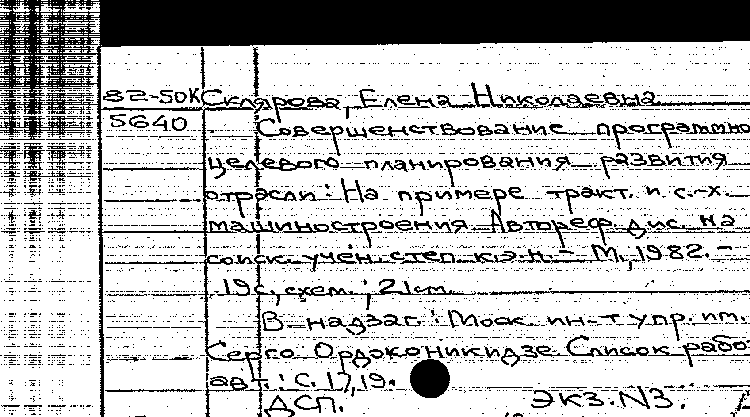 82-50К Склярова, Елена Николаевна
5640 Совершенствование программно
целевого планирования развития
отрасли: На примере тракт. и с.-х.
машиностроения Автореф дис. на
соиск. учен. степ. к.э.н. - М., 1982. -
19с., схем.; 21см.
В надзаг.: Моск. ин-т упр. им.
Серго Орджоникидзе Список рабо
авт.: с. 17,19.
ДСП. Экз. N3.